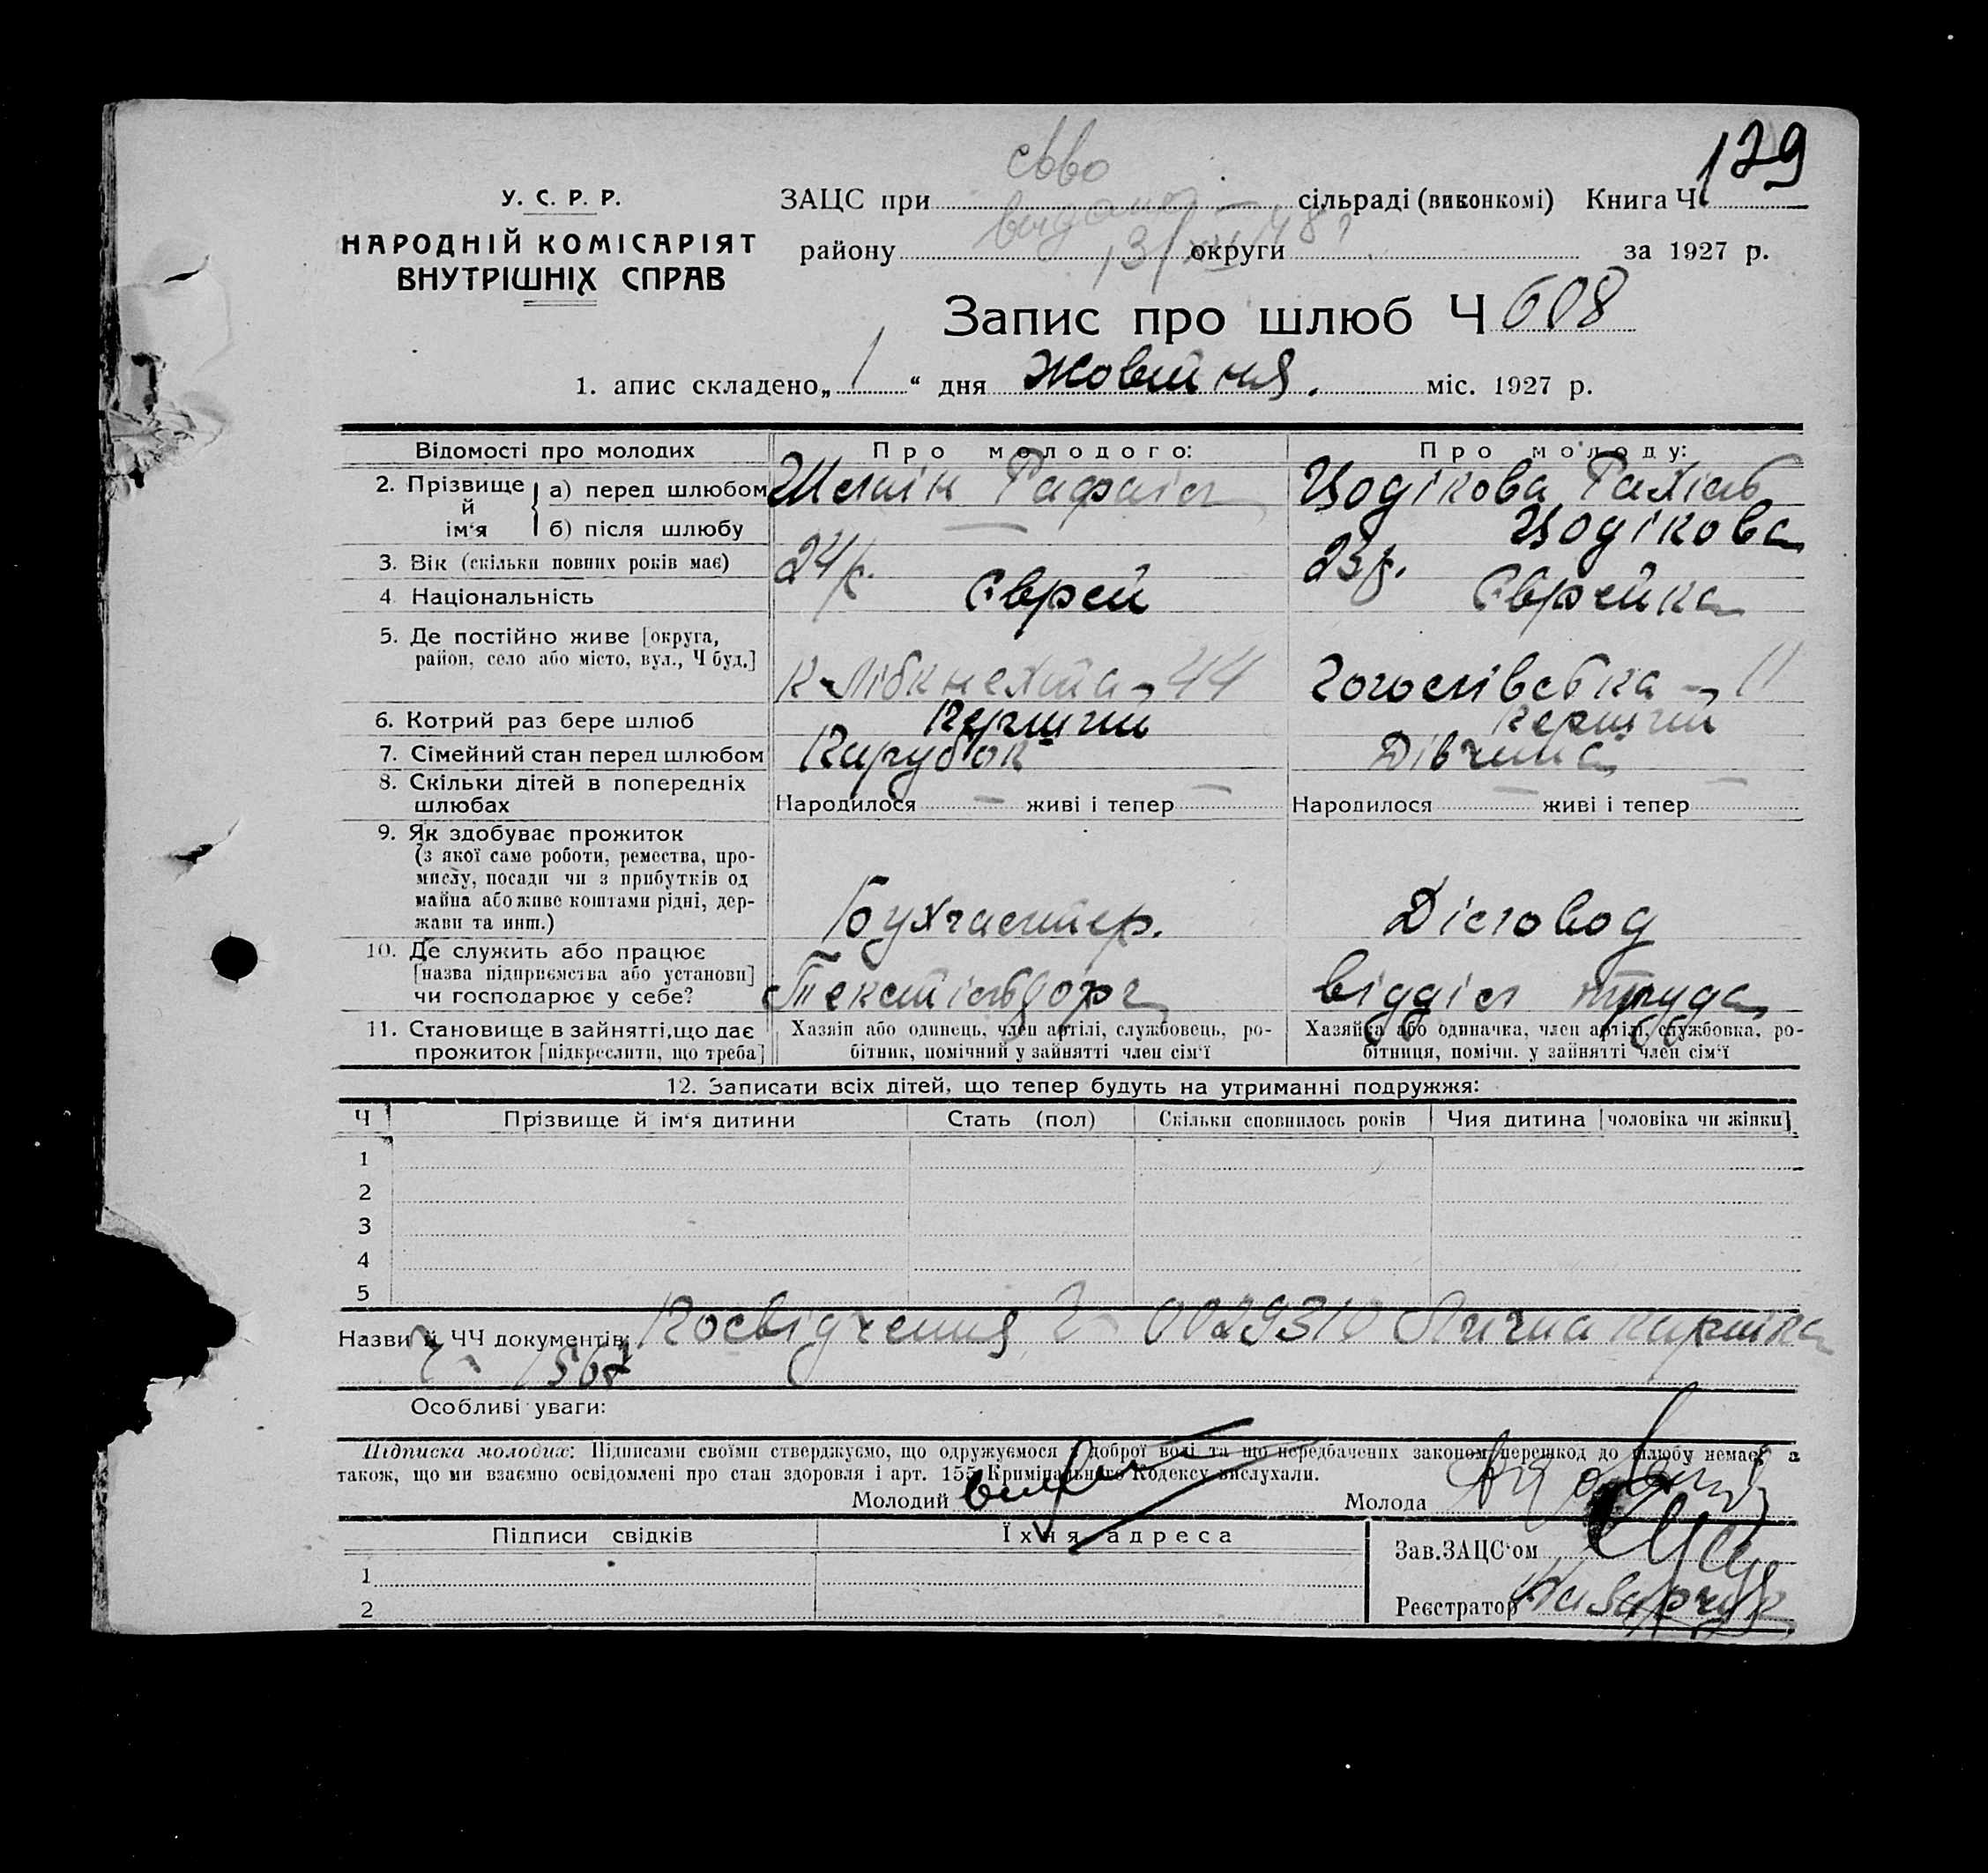 129
У. С. Р. Р.
НАРОДНІЙ КОМІСАРІЯТ
ВНУТРІШНІХ СПРАВ
ЗАЦС при сільраді (виконкомі) Книга Ч.
району округи за 1927 р.
Запис про шлюб Ч 608
1. апис складено „ 1 “ дня Жовтня. міс. 1927 р.
Відомості про молодих Про молодого: Про молоду:
2. Прізвище й ім‘я а) перед шлюбом Рафаіл Цодікова Рахіль
б) після шлюбу — Цодікова
3. Вік (скільки повних років має) 24 р. 23 р.
4. Національність Єврей Єврейка
5. Де постійно живе [округа,
район, село або місто, вул., Ч буд.]
К-Лібкнехта 44 Гоголівська 11
6. Котрий раз бере шлюб Перший Перший
7. Сімейний стан перед шлюбом Парубок Дівчина
8. Скільки дітей в попередніх
шлюбах Народилося — живі і тепер — Народилося — живі і тепер —
9. Як здобуває прожиток
(з якої саме роботи, ремества, про-
мислу, посади чи з прибутків од
майна або живе коштами рідні, дер-
жави та инш.) Бухгалтер. Діловод
10. Де служить або працює
[назва підприємства або установи]
чи господарює у себе? Текстільторг відділ труда
11. Становище в зайнятті, що дає
прожиток [підкреслити, що треба]
Хазяїн або одинець, член артілі, службовець, ро-
бітник, помічний у зайнятті член сім‘ї
Хазяйка або одиначка, член артілі, службовка, ро-
бітниця, помічн. у зайнятті член сім‘ї
12. Записати всіх дітей, що тепер будуть на утриманні подружжя:
Ч Прізвище й ім‘я дитини Стать (пол) Скільки сповнилось років Чия дитина [чоловіка чи жінки]
1
2
3
4
5
Назви й ЧЧ документів: Посвідчення Ч 0029310 Лична картка
Ч 1567
Особливі уваги:
Підписка молодих: Підписами своїми стверджуємо, що одружуємося з доброї волі та що передбачених законом перешкод до шлюбу немає, а
також, що ми взаємно освідомлені про стан здоровля і арт. 155 Кримінального Кодексу вислухали.
Молодий Молода
Підписи свідків Їхня адреса
Зав. ЗАЦС‘ом
1
2
Реєстратор